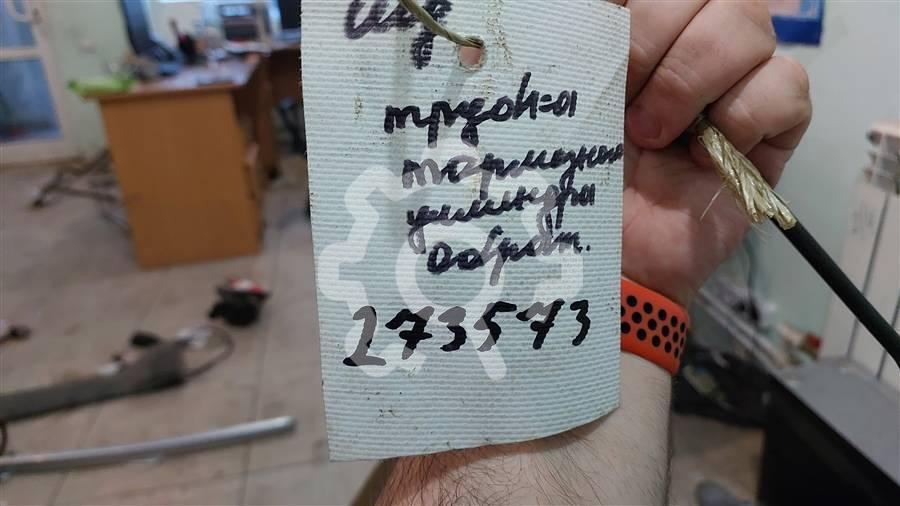 трубон=а
тормозного
цилиндра
обрат.
273573